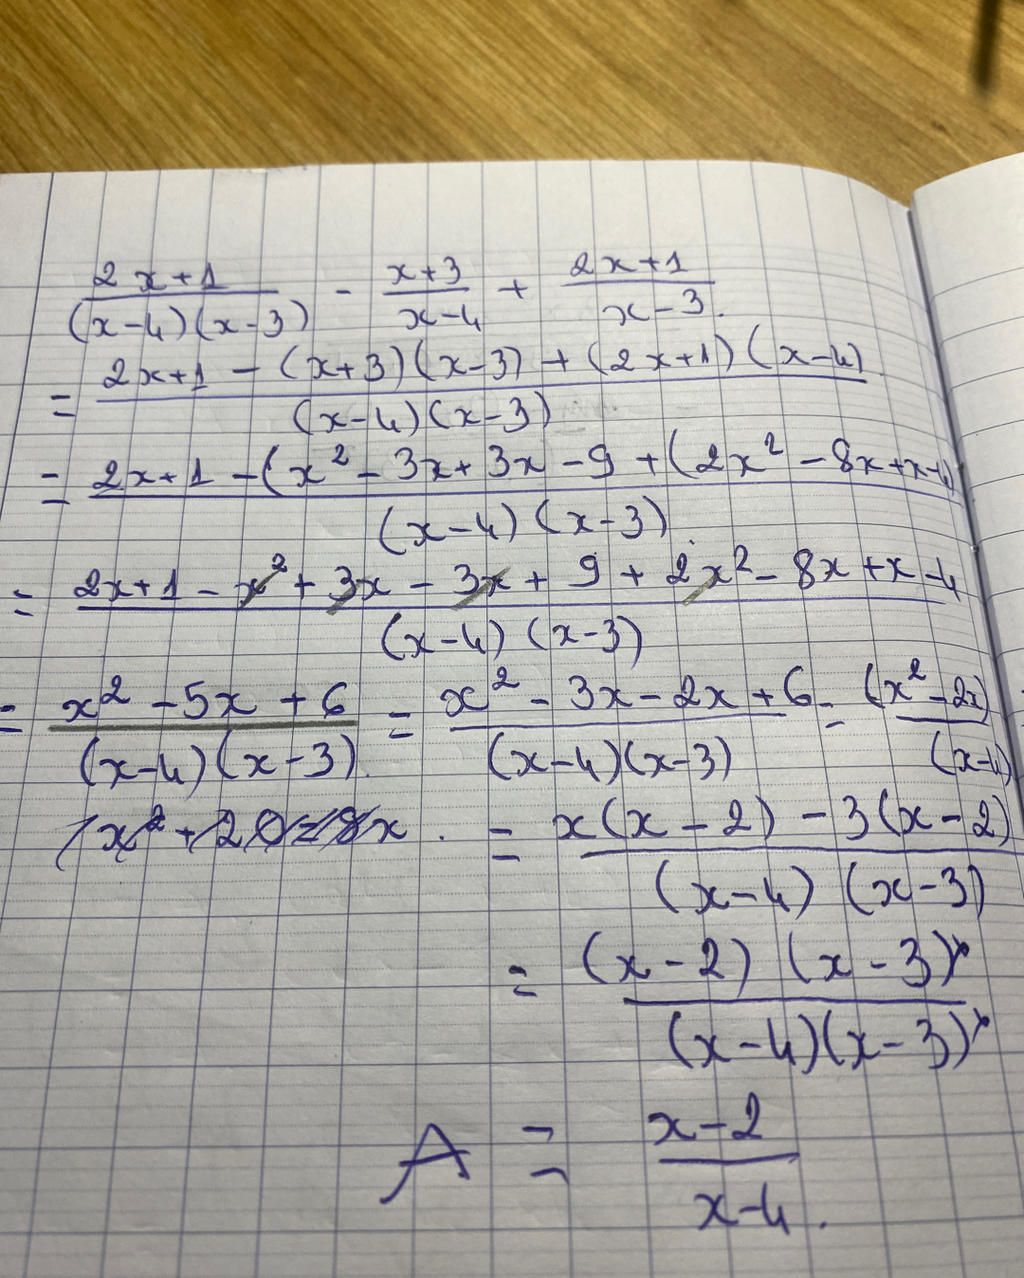 2x+1/(x-4)(x-3) - x+3/x-4 + 2x+1/x-3.
= 2x+1 - (x+3)(x-3) + (2x+1)(x-4)/(x-4)(x-3)
= 2x+1 - (x² - 3x + 3x - 9 + (2x² - 8x + x - 4)/(x-4)(x-3)
= 2x+1 - x² + 3x - 3x + 9 + 2x² - 8x + x - 4/(x-4)(x-3)
= x² - 5x + 6/(x-4)(x-3). = x² - 3x - 2x + 6/(x-4)(x-3) = (x² - 2x)/(x-4)
= x(x-2) - 3(x-2)/(x-4)(x-3)
= (x-2)(x-3)/(x-4)(x-3)
A = x-2/x-4.